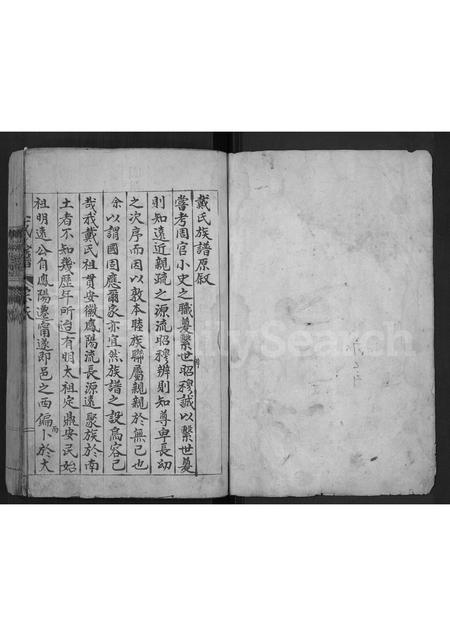 戴氏族譜原叙
嘗考周官小史之職奠繫世昭穆誠以繫世奠
則知遠近親疏之源流昭穆辨則知尊卑長幼
之次序而因以敦本睦族聯屬親親於無已也
余以謂國固應爾家亦宜然族譜之設烏容已
哉我戴氏祖貫安徽鳳陽流長源遠聚族於南
土者不知幾歷年所迨有明太祖定鼎安民始
祖明遠公自鳳陽遷甯遂即邑之西偏卜於大
FamilySearch